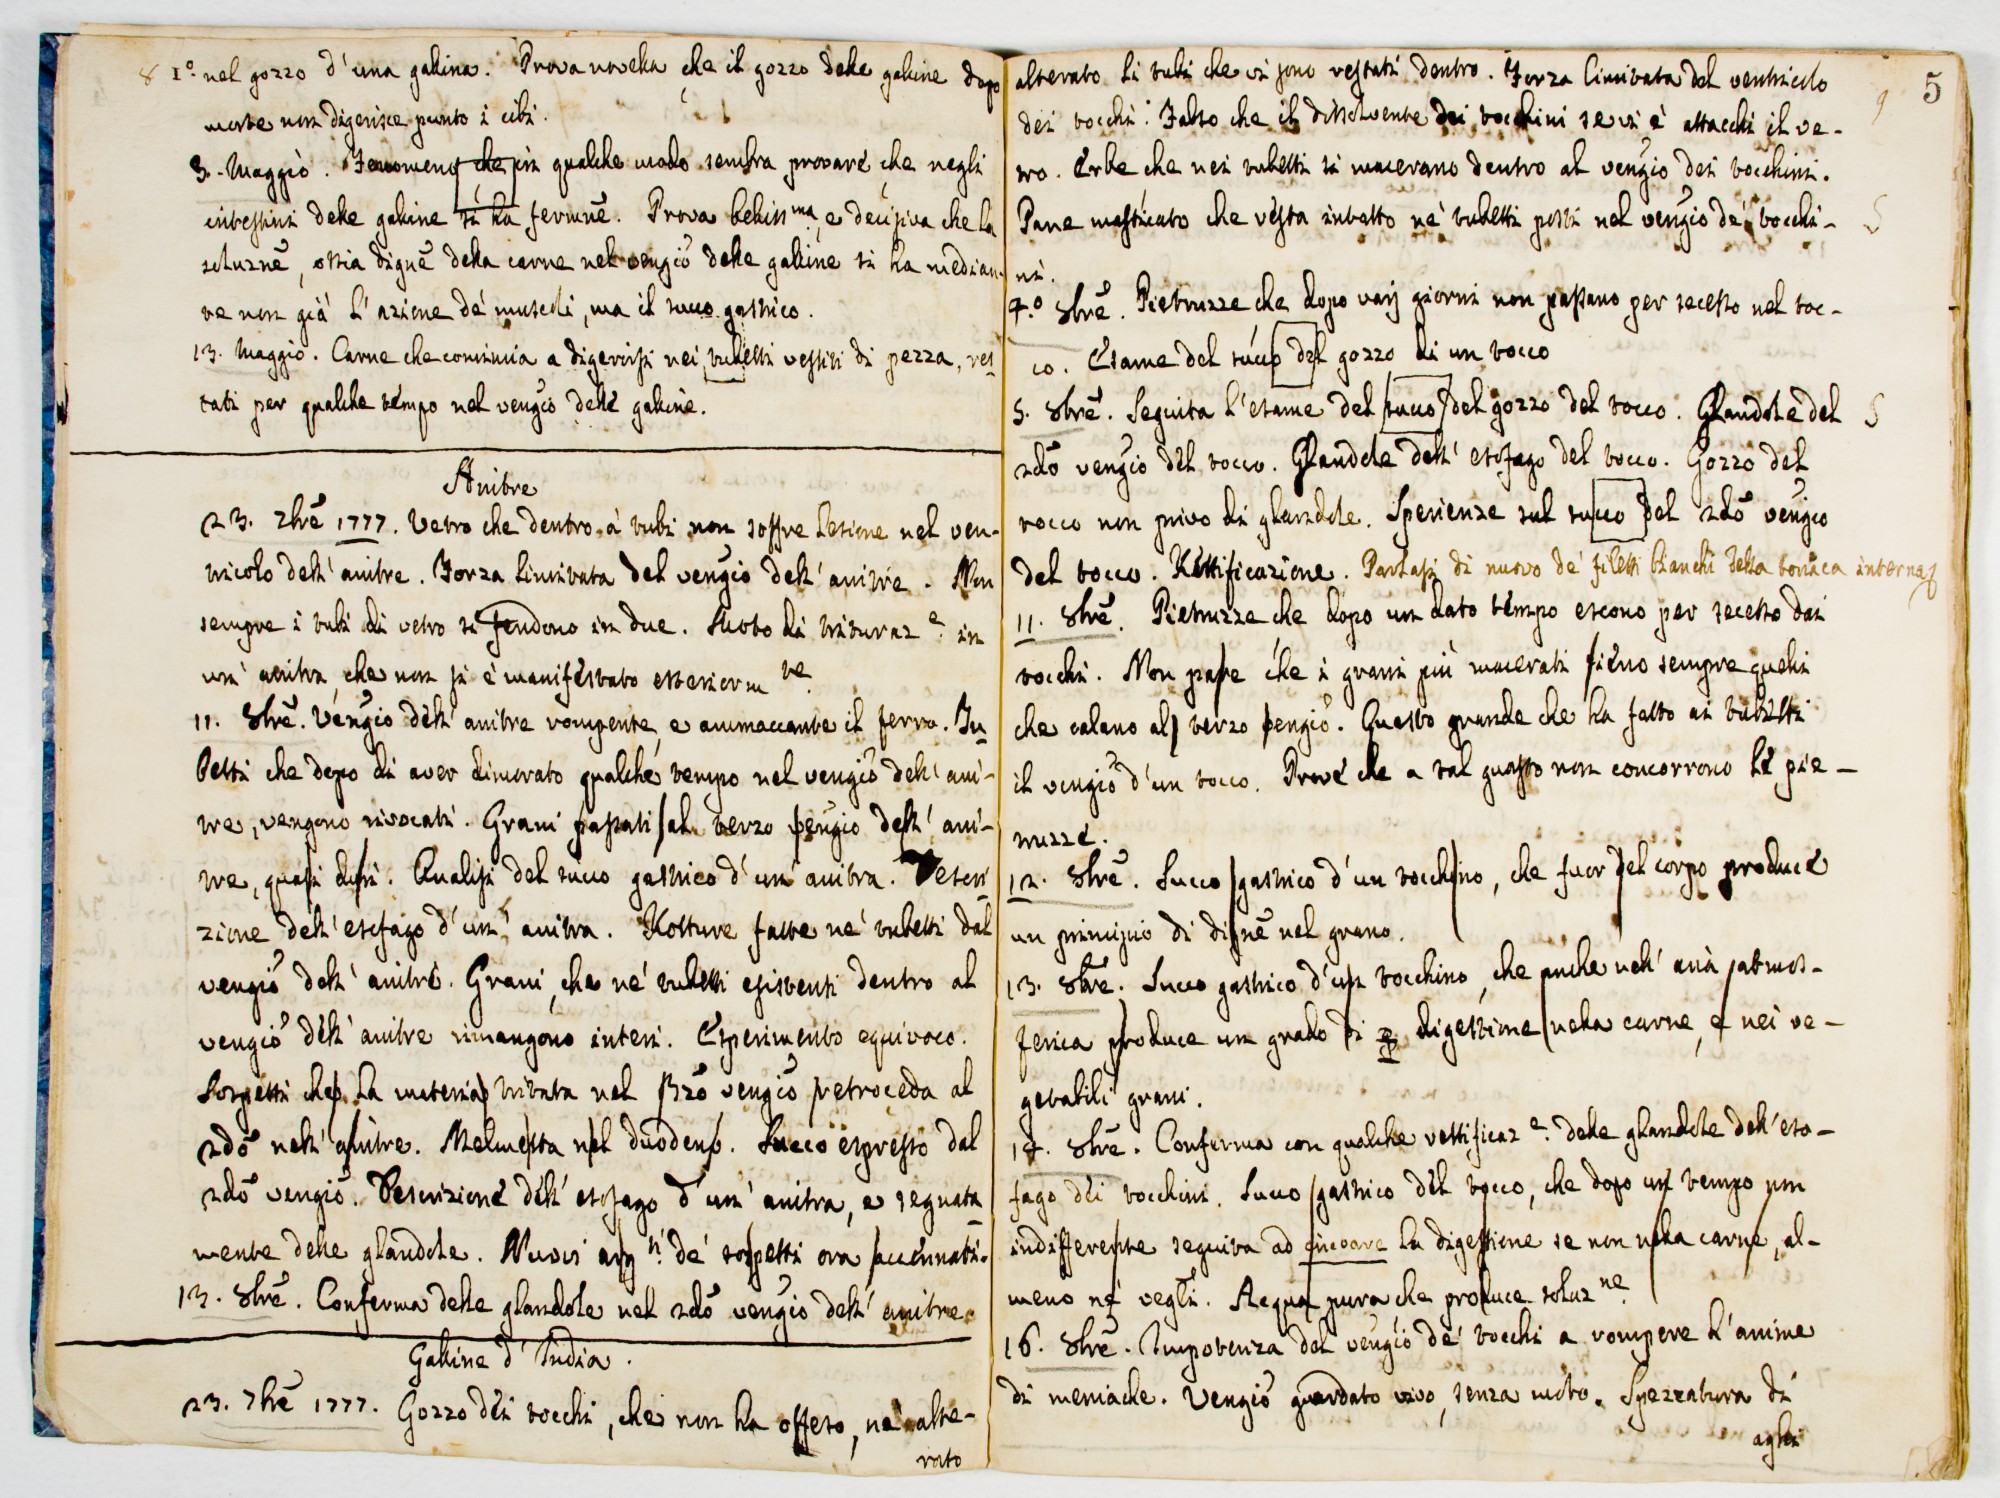 8 1.º nel gozzo d'una gallina. Prova novella che il gozzo delle galline dopo
morte non digerisce punto i cibi.
3. Maggio. Fenomeno che in qualche modo sembra provare che negli
intestini delle galline si ha fermnē. Prova bellissma, e decisiva che la
soluznē, ossia dignē della carne nel vengió delle galline si ha median-
te non già l'azione de' muscoli, ma il succo gastrico.
13. Maggio. Carne che comincia a digerirsi nei tubetti vestiti di pezza, res
tati per qualche tempo nel vengió delle galline.
Anitre
23. 7brē 1777. Vetro che dentro a' tubi non soffre lesione nel ven-
tricolo dell'anitre. Forza limitata del vengió dell'anitre. Non
sempre i tubi di vetro si fendono in due. Moto di trituraze in
un'anitra che non si è manifestato esteriormte.
11. 8brē. Vengió dell'anitre rompente, e ammaccante il ferro. Tu
betti che dopo di aver dimorato qualche tempo nel vengió dell'ani-
tre, vengono rivocati. Grani passati al terzo vengió dell'ani-
tre, quasi Analisi del succo gastrico d'un'anitra. Descri
zione dell'esofago d'un'anitra. Rotture fatte ne' tubetti dal
vengió dell'anitre. Grani, che ne' tubetti esistenti dentro al
vengió dell'anitre rimangono interi. Esperimento equivoco.
Sospetti che la materia tritata nel 3zo vengió retroceda al
2dō nell'anitre. Melmetta nel duodeno. Succo espresso dal
2dō vengió. Descrizione dell'esofago d'un'anitra, e segnata
mente delle glandole. Nuovi de' sospetti ora accennati.
13. 8brē. Conferma delle glandole nel 2dō vengió dell'anitre.
Galline d'India.
23. 7brē 1777. Gozzo dei tocchi, che non ha offeso, nè alte-
rato
5
alterato li tubi che vi sono restati dentro. Forza limitata del ventricolo 9
dei tocchi. Falso che il dissolvente dei tocchini se vi è attacchi il ve-
tro. Erbe che nei tubetti si macerano dentro al vengió dei tocchini.
Pane masticato che resta intatto ne' tubetti posti nel vengió de' tocchi-
ni.
4.º 8brē. Pietruzze che dopo varj giorni non passano per secesso nel toc-
co. Esame del succo del gozzo di un tocco
5. 8brē. Seguita l'esame del succo del gozzo del tocco. Glandole del
2dō vengió del tocco. Glandole dell'esofago del tocco. Gozzo del
tocco non privo di glandole. Sperienze sul succo del 2dō vengió
del tocco. Rettificazione. Parlasi di nuovo de' filetti bianchi della tonaca interna
11. 8brē. Pietruzze che dopo un dato tempo escono per secesso dai
tocchi. Non pare che i grani più macerati sieno sempre quelli
che calano al terzo vengió. Guasto grande che ha fatto ai tubetti
il vengió d'un tocco. Prove che a tal guasto non concorrono le pie-
truzze.
12. 8brē. Succo gastrico d'un tocchino, che fuor del corpo produce
un principio di dignē nel grano.
13. 8brē. Succo gastrico d'un tocchino, che anche nell'aria atmos-
ferica produce un grado di digestione nella carne, e nei ve-
getabili grani.
14. 8brē. Conferma con qualche rettificaze. delle glandole dell'eso-
fago dei tocchini. Succo gastrico del tocco, che dopo un tempo non
indifferente seguita ad incoare la digestione se non nella carne, al-
meno ne' vegli. Acqua pura che produce soluzne.
16. 8brē. Impotenza del vengió de' tocchi a rompere l'anime
di meniache. Vengió guardato vivo, senza moto. Spezzatura di
aghi